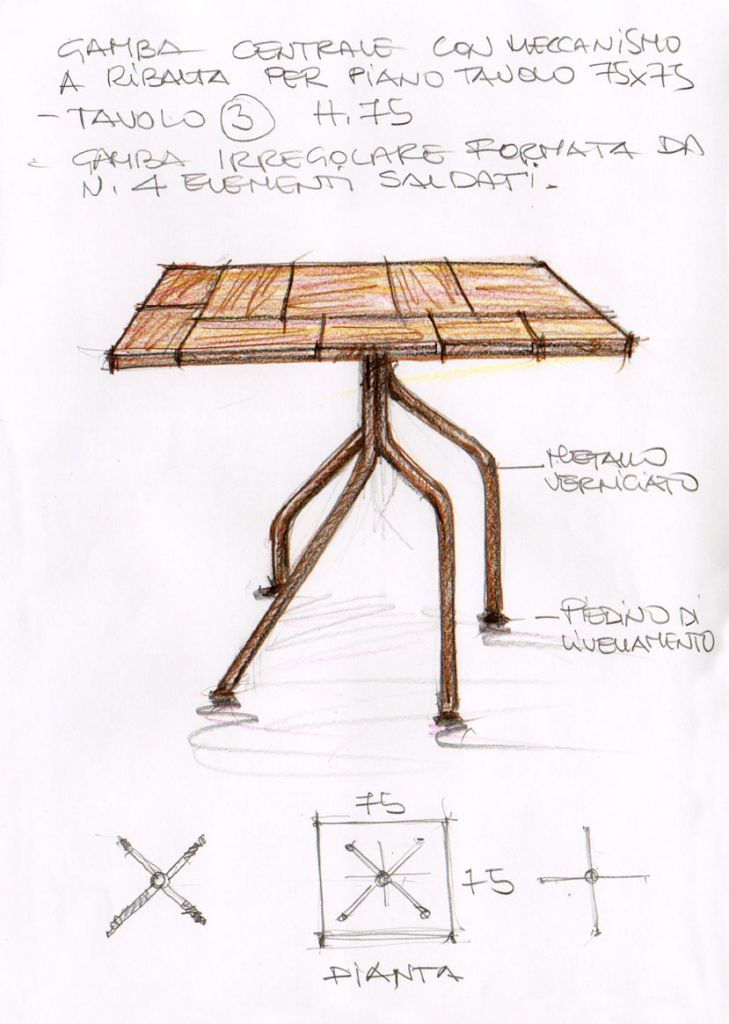 GAMBA CENTRALE CON MECCANISMO
A RIBALTA PER PIANO TAVOLO 75X75
- TAVOLO 3 H. 75
- GAMBA IRREGOLARE FORMATA DA
N. 4 ELEMENTI SALDATI.
METALLO
VERNICIATO
- PIEDINO DI
LIVELLAMENTO
75
75
PIANTA